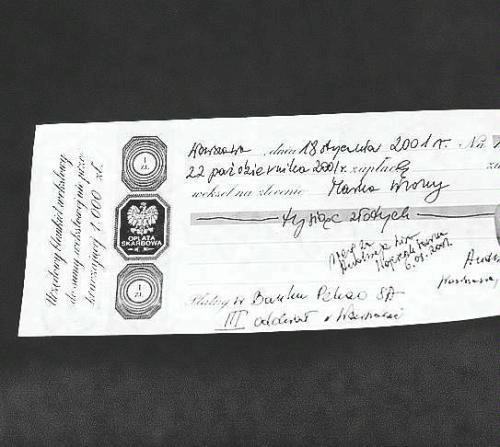 Urzędowy blankiet wekslowy
do sumy wekslowej nie prze-
kraczającej 1 000 zł.
1
ZŁ
OPŁATA
SKARBOWA
1
ZŁ
Warszawa, dnia 18 stycznia 2001 r. Na
22 października 2001 r. zapłacę za
weksel na zlecenie Marka Wrony
tysiąc złotych
6.03.2001
Płatny w Banku Pekao SA
III oddział w Warszawie